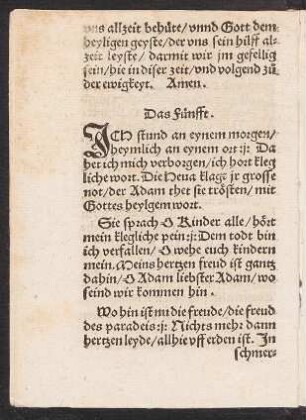 vns allzeit behüte/ vnnd Gott dem
heyligen geyste/ der vns sein hülff al-
zeit leyste/ darmit wir jm gefellig
sein/ hie in diser zeit/ vnd volgend zů
der ewigkeyt. Amen.
Das Fünfft.
ICH stund an eynem morgen/
heymlich an eynem ort :|: Da
het ich mich verborgen/ ich hort kleg
liche wort. Die Heua klagt jr grosse
not/ der Adam thet sie trösten/ mit
Gottes heylgem wort.
Sie sprach O Kinder alle/ hört
mein klegliche pein :|: Dem todt bin
ich verfallen/ O wehe euch kindern
mein. Meins hertzen freud ist gantz
dahin/ O Adam liebster Adam/ wo
seind wir kommen hin.
Wo hin ist nu die freude/ die freud
des paradeis :|: Nichts mehr dann
hertzen leyde/ allhie vff erden ist. In
schmer-